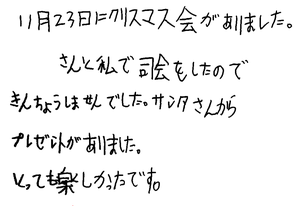 11月23日にクリスマス会がありました。
さんと私で司会をしたので
きんちょうしはせんでした。サンタさんから
プレゼントがありました。
とっても楽しかったです。